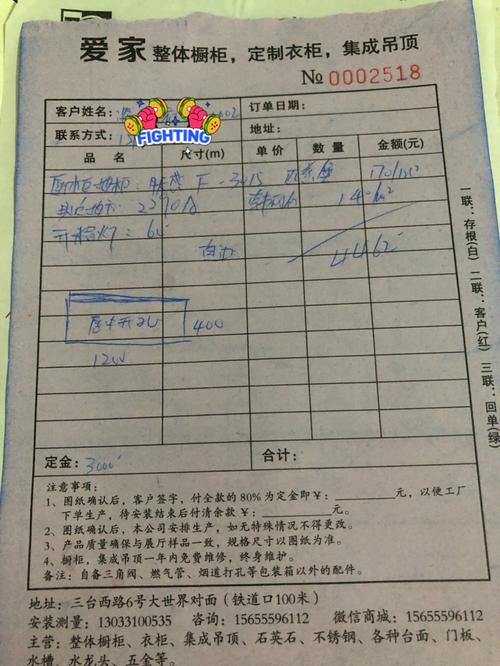 爱家 整体橱柜，定制衣柜，集成吊顶
№ 0002518
客户姓名： 订单日期：
联系方式： 地址：
FIGHTING
品名 尺寸(m) 单价 数量 金额(元)
F-3015 170/m²
2290 140/m²
开 灯：60
4462
居中开20 400
1200
定金：3000 合计：
注意事项：
1、图纸确认后，客户签字，付全款的80%为定金即￥：元，以便工厂
下单生产，待安装结束后付清余款￥：元。
2、图纸确认后，本公司安排生产，如无特殊情况不得更改。
3、产品质量确保与展厅样品一致，规格尺寸以图纸为准。
4、橱柜，集成吊顶一年内免费维修，终身维护。
备注：自备三角阀、燃气管、烟道打孔等包装箱以外的配件。
地址：三台西路6号大世界对面（铁道口100米）
安装测量：13033100535 咨询：15655596112 微信商城：15655596112
主营：整体橱柜、衣柜、集成吊顶、石英石、不锈钢、各种台面、门板、
水槽、水龙头、五金等。
一联：存根(白) 二联：客户(红) 三联：回单(绿)